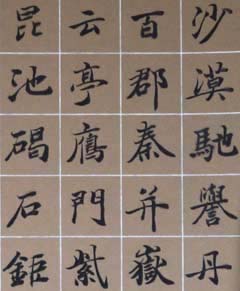 沙漠馳譽丹
百郡秦并嶽
云亭鴈門紫
昆池碣石鉅